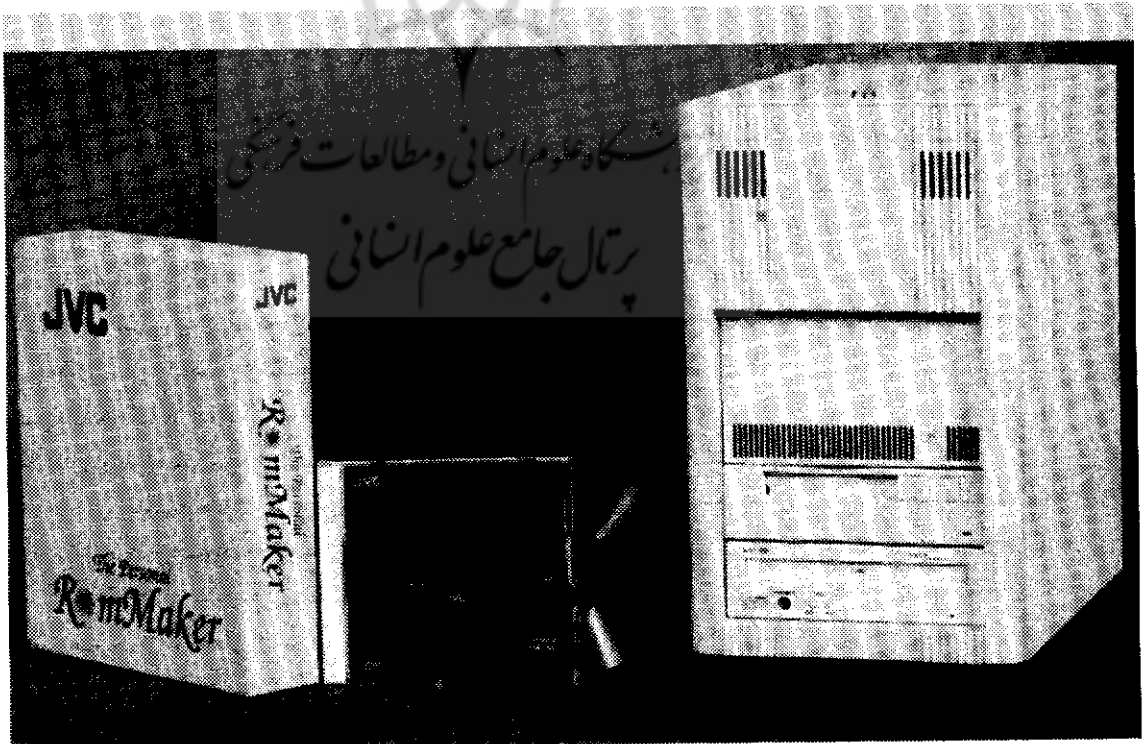 پژوهشگاه علوم انسانی و مطالعات فرهنگی
پرتال جامع علوم انسانی
JVC
JVC
The Personal
RomMaker
The Personal
RomMaker